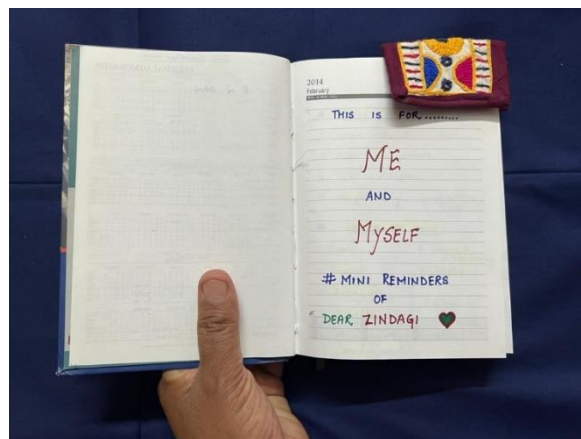 2014
February
THIS IS FOR.........
ME
AND
MYSELF
# MINI REMINDERS
OF
DEAR ZINDAGI